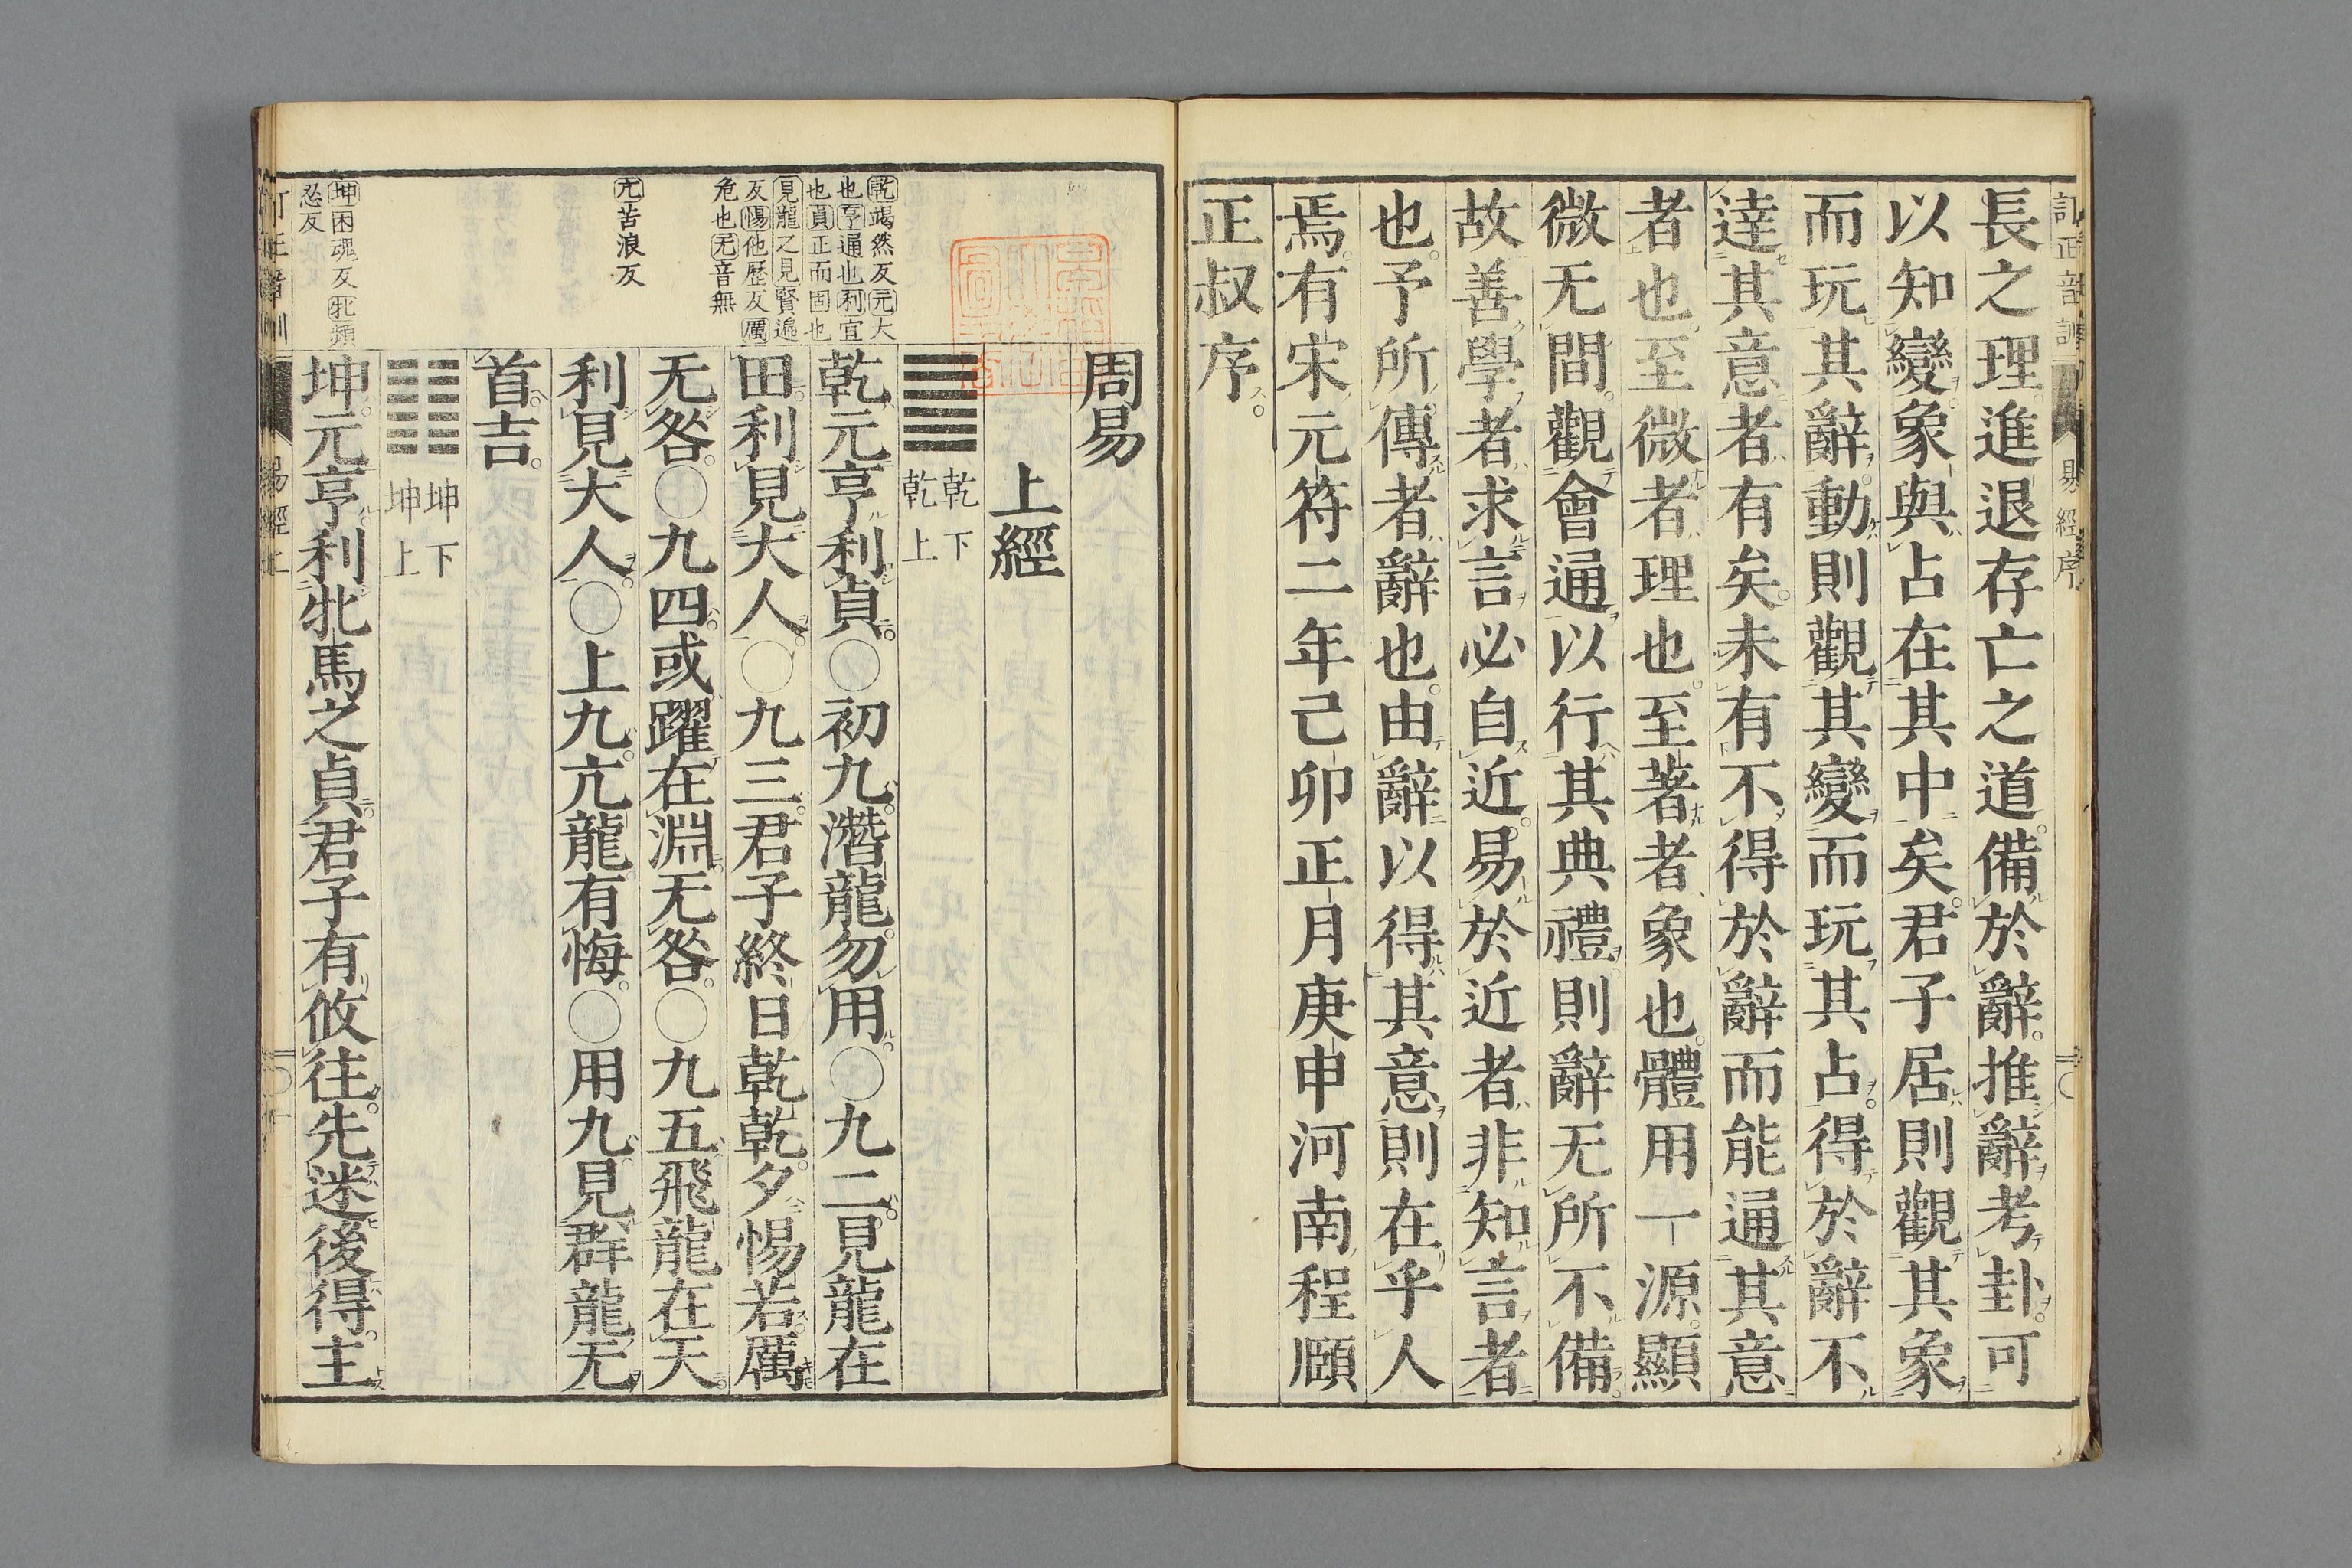 長之理進退存亡之道備於辭推辭考卦可
以知變象與占在其中矣君子居則觀其象
而玩其辭動則觀其變而玩其占得於辭不
達其意者有矣未有不得於辭而能通其意
者也至微者理也至著者象也體用一源顯
微无間觀會通以行其典禮則辭无所不備
故善學者求言必自近易於近者非知言者
也予所傳者辭也由辭以得其意則在乎人
焉有宋元符二年己卯正月庚申河南程頤
正叔序
周易
上經
乾下
乾上
乾元亨利貞〇初九潛龍勿用〇九二見龍在
田利見大人〇九三君子終日乾乾夕惕若厲
无咎〇九四或躍在淵无咎〇九五飛龍在天
利見大人〇上九亢龍有悔〇用九見群龍无
首吉
坤下
坤上
坤元亨利牝馬之貞君子有攸往先迷後得主
乾竭然反元大
也亨通也利宜
也貞正而固也
見龍之見賢遍
反惕他歷反厲
危也无音無
亢苦浪反
坤困魂反牝頻
忍反
易經序